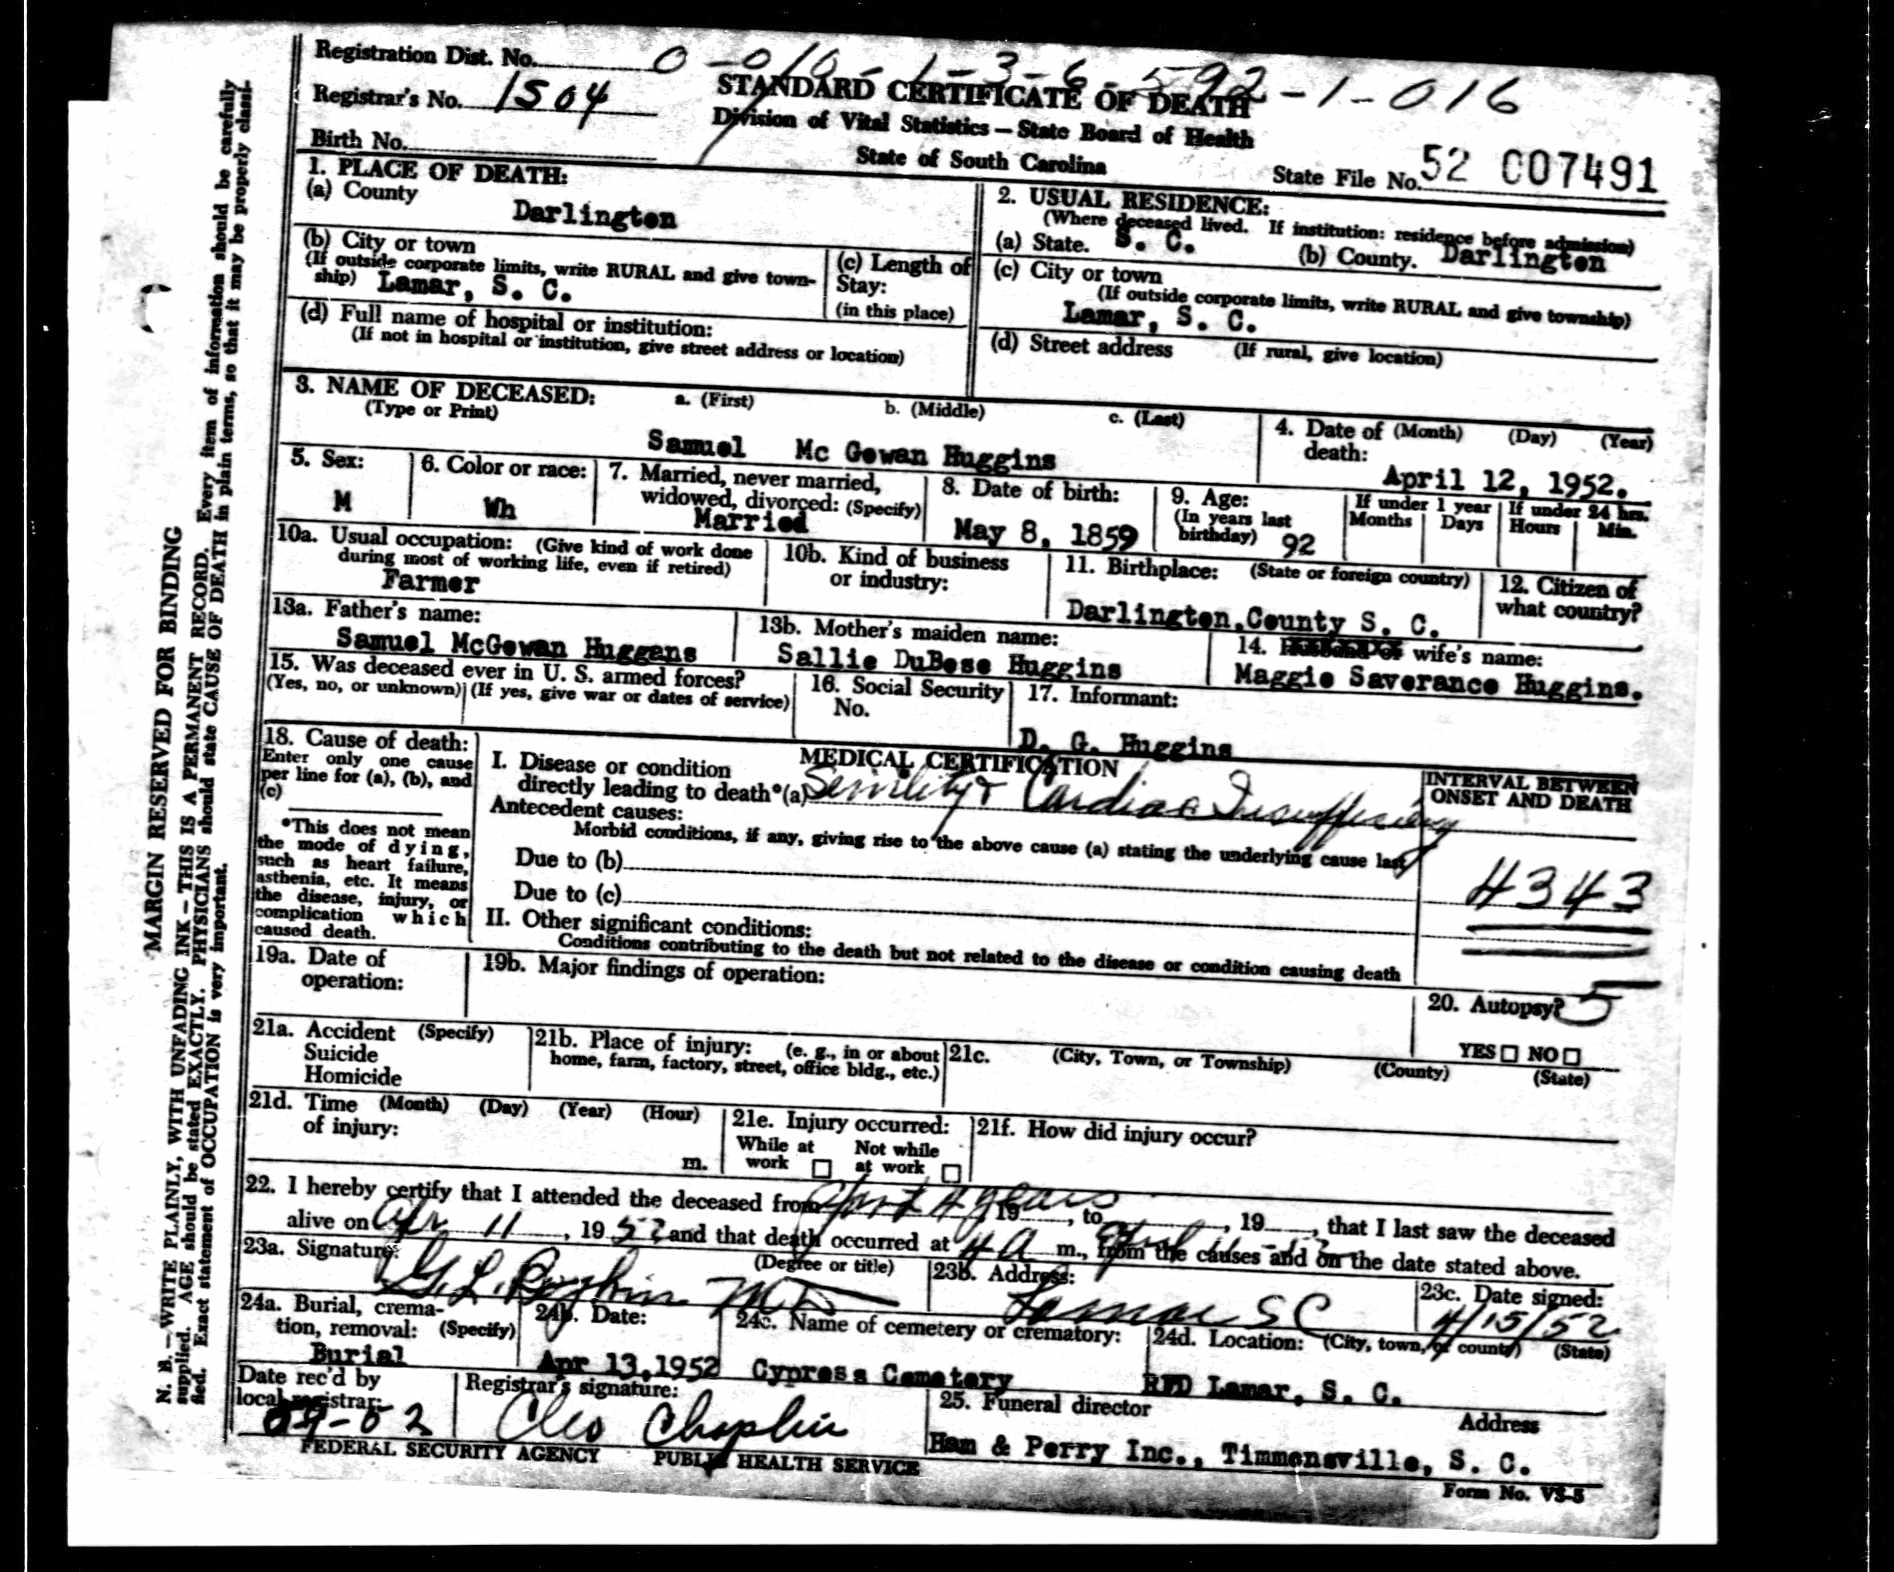 Registration Dist. No. 0-010-1-3-6-592-1-016
Registrar's No. 1504
STANDARD CERTIFICATE OF DEATH
Birth No.
Division of Vital Statistics — State Board of Health
State of South Carolina
State File No. 52 007491
1. PLACE OF DEATH:
(a) County
Darlington
2. USUAL RESIDENCE:
(Where deceased lived. If institution: residence before admission)
(a) State. S. C. (b) County. Darlington
(b) City or town
(If outside corporate limits, write RURAL and give town-
ship) Lamar, S. C.
(c) Length of
Stay:
(in this place)
(c) City or town
(If outside corporate limits, write RURAL and give township)
Lamar, S. C.
(d) Full name of hospital or institution:
(If not in hospital or institution, give street address or location)
(d) Street address (If rural, give location)
3. NAME OF DECEASED: a. (First) b. (Middle) c. (Last)
(Type or Print)
Samuel Mc Gowan Huggins
4. Date of (Month) (Day) (Year)
death:
April 12, 1952.
5. Sex:
M
6. Color or race:
Wh
7. Married, never married,
widowed, divorced: (Specify)
Married
8. Date of birth:
May 8, 1859
9. Age:
(In years last
birthday) 92
If under 1 year
Months Days
If under 24 hrs.
Hours Min.
10a. Usual occupation: (Give kind of work done
during most of working life, even if retired)
Farmer
10b. Kind of business
or industry:
11. Birthplace: (State or foreign country)
Darlington.County S. C.
12. Citizen of
what country?
13a. Father's name:
Samuel McGowan Huggens
13b. Mother's maiden name:
Sallie DuBose Huggins
14. Husband or wife's name:
Maggie Saverance Huggins.
15. Was deceased ever in U. S. armed forces?
(Yes, no, or unknown) (If yes, give war or dates of service)
16. Social Security
No.
17. Informant:
D. G. Huggins
18. Cause of death:
Enter only one cause
per line for (a), (b), and
(c)
*This does not mean
the mode of dying,
such as heart failure,
asthenia, etc. It means
the disease, injury, or
complication which
caused death.
MEDICAL CERTIFICATION
I. Disease or condition
directly leading to death*(a) Senility & Cardiac Insufficiency
Antecedent causes:
Morbid conditions, if any, giving rise to the above cause (a) stating the underlying cause last
Due to (b)
Due to (c)
II. Other significant conditions:
Conditions contributing to the death but not related to the disease or condition causing death
INTERVAL BETWEEN
ONSET AND DEATH
4343
19a. Date of
operation:
19b. Major findings of operation:
20. Autopsy? 5
YES NO
21a. Accident (Specify)
Suicide
Homicide
21b. Place of injury: (e. g., in or about
home, farm, factory, street, office bldg., etc.)
21c. (City, Town, or Township) (County) (State)
21d. Time (Month) (Day) (Year) (Hour)
of injury:
m.
21e. Injury occurred:
While at Not while
work at work
21f. How did injury occur?
22. I hereby certify that I attended the deceased from 4 years, 19, to, 19, that I last saw the deceased
alive on Apr 11, 1952 and that death occurred at 4 A m., from the causes and on the date stated above.
23a. Signature: G. L. M D
(Degree or title)
23b. Address:
Lamar S C
23c. Date signed:
4/15/52
24a. Burial, crema-
tion, removal: (Specify)
Burial
24b. Date:
Apr 13,1952
24c. Name of cemetery or crematory:
Cypress Cemetery
24d. Location: (City, town, or county) (State)
RFD Lamar, S. C.
Date rec'd by
local registrar:
Registrar's signature:
Cleo Chaplin
25. Funeral director Address
Ham & Perry Inc., Timmonsville, S. C.
FEDERAL SECURITY AGENCY PUBLIC HEALTH SERVICE
Form No. VS-5
MARGIN RESERVED FOR BINDING
N. B.—WRITE PLAINLY, WITH UNFADING INK—THIS IS A PERMANENT RECORD. Every item of information should be carefully
supplied. AGE should be stated EXACTLY. PHYSICIANS should state CAUSE OF DEATH in plain terms, so that it may be properly classi-
fied. Exact statement of OCCUPATION is very important.